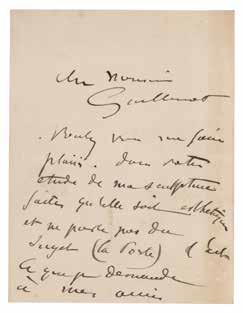 Cher Monsieur
Guillemot
Voulez vous me faire
plaisir. Dans votre
étude de ma sculpture
faites qu'elle soit esthétique
et ne parle pas du
Sujet (la Porte)
Ce que je demande
à mes amis